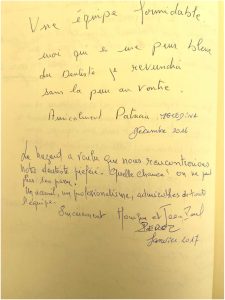 Une équipe formidable
moi qui a une peur bleue
du Dentiste je reviendrai
sans la peur au ventre.
Amicalement
décembre 2016
Le hasard a voulu que nous rencontrions
notre dentiste préféré. Quelle chance! on ne peut
plus s'en passer.
Un accueil, un professionalisme, admirables de toute
l'équipe.
Sincèrement et Jean Paul
Janvier 2017